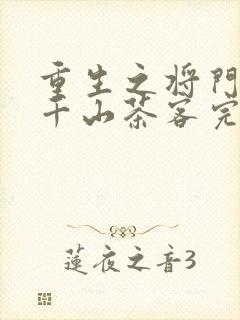 重生之将門
千山茶客完
蓮夜之音3